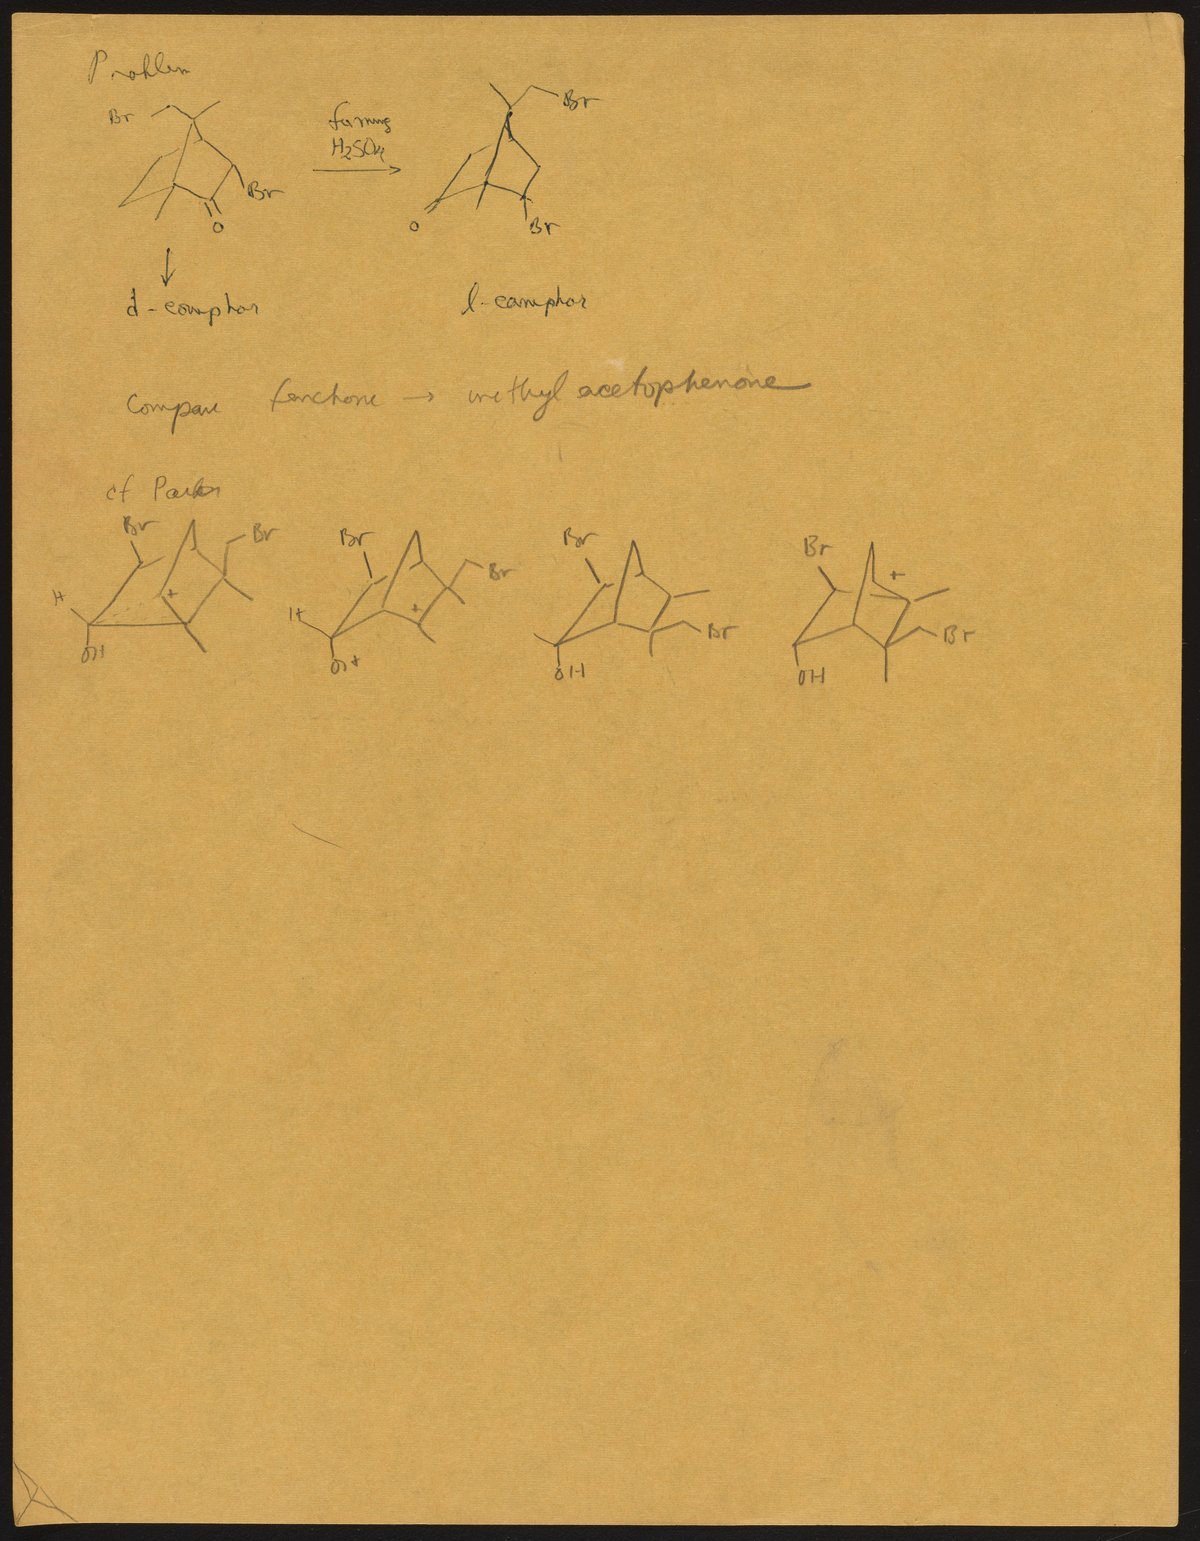 Problem
Br
Br
O
fuming
H2SO4
Br
O
Br
d-camphor
l-camphor
Compare fenchone → methyl acetophenone
cf
Br
Br
H
+
OH
Br
Br
H
+
OH
Br
Br
OH
Br
+
Br
OH